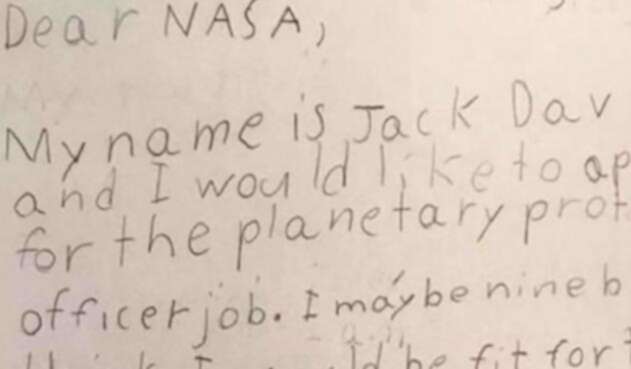 Dear NASA,
My name is Jack Dav
and I would like to ap
for the planetary prot
officer job. I may be nine b
I would be fit for